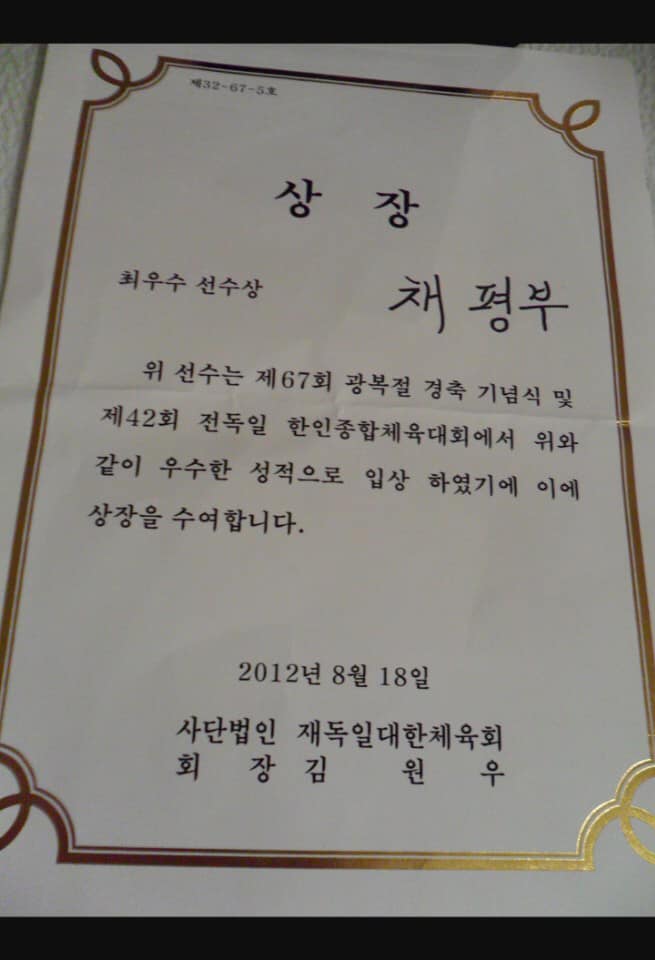 제32-67-5호
상 장
최우수 선수상 채 평부
위 선수는 제67회 광복절 경축 기념식 및
제42회 전독일 한인종합체육대회에서 위와
같이 우수한 성적으로 입상 하였기에 이에
상장을 수여합니다.
2012년 8월 18일
사단법인 재독일대한체육회
회 장 김 원 우